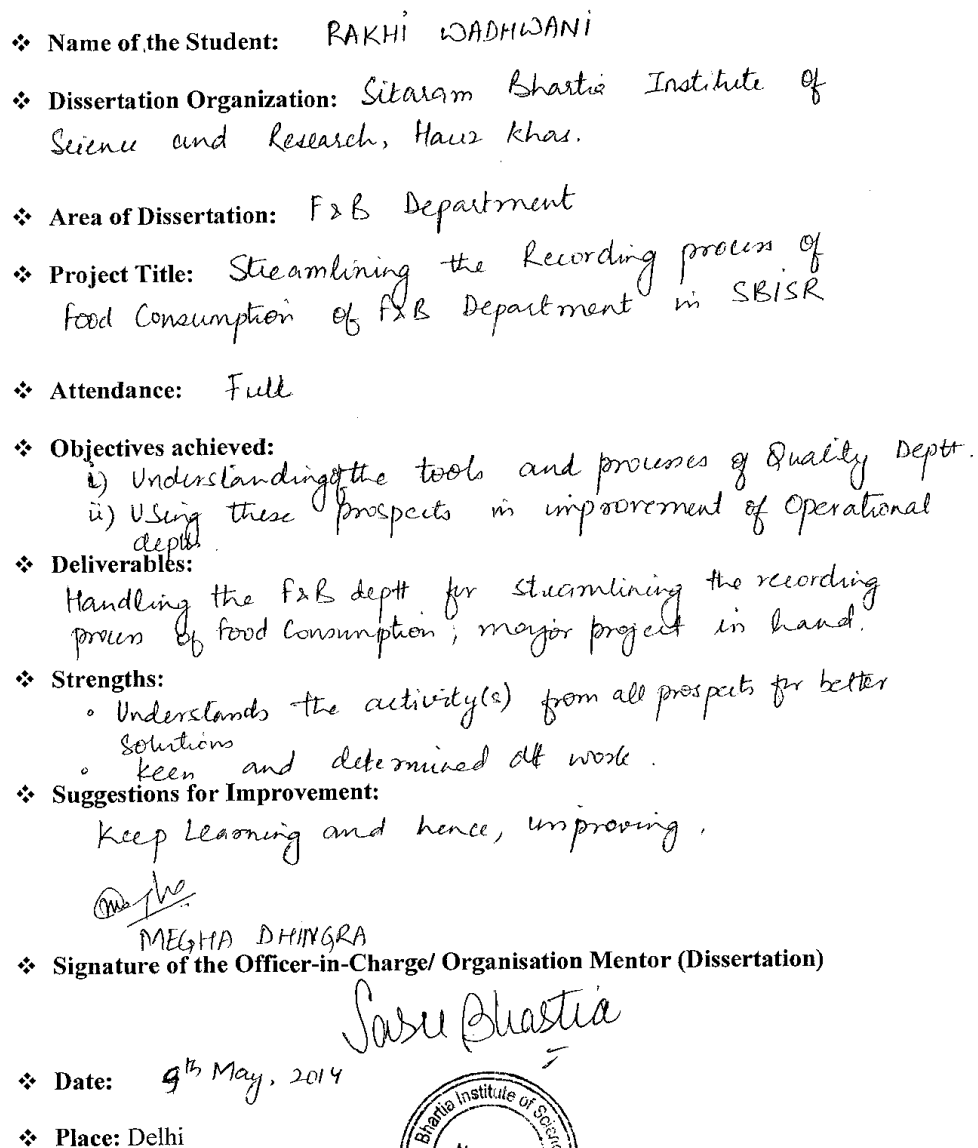 ❖ Name of the Student: RAKHI WADHWANI
❖ Dissertation Organization: Sitaram Bhartia Institute of
Science and Research, Hauz Khas.
❖ Area of Dissertation: F&B Department
❖ Project Title: Streamlining the Recording process of
Food Consumption of F&B Department in SBISR
❖ Attendance: Full
❖ Objectives achieved:
i) Understanding of the tools and processes of Quality Deptt.
ii) Using these prospects in improvement of Operational
deptt.
❖ Deliverables:
Handling the F&B deptt for streamlining the recording
process of Food Consumption; major project in hand.
❖ Strengths:
• Understands the activity(s) from all prospects for better
Solutions
• Keen and determined at work.
❖ Suggestions for Improvement:
Keep Learning and hence, improving.
MEGHA DHINGRA
❖ Signature of the Officer-in-Charge/ Organisation Mentor (Dissertation)
Bhartia
❖ Date: 9th May, 2014
Bhartia Institute of Scienc
❖ Place: Delhi